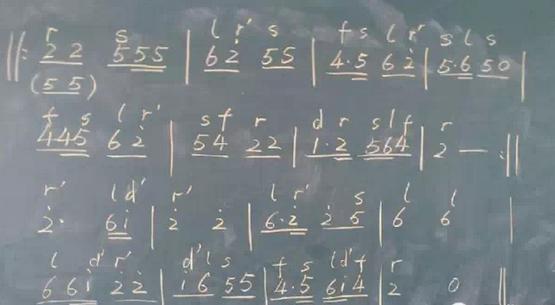 r s l r' s f s l r' s l s
‖: 2 2 5 5 5 | 6 2̇ 5 5 | 4·5 6 2̇ | 5·6 5 0 |
(5 5)
f s l r' s f r d r s l f r
4 4 5 6 2̇ | 5 4 2 2 | 1·2 5 6 4 | 2 — :‖
r' l d' r' l r' s l l
2̇· 6 1̇ | 2̇ 2̇ | 6·2̇ 2̇ 5 | 6 6 |
l d' r' d' l s f s l d' f r
6 6 1̇ 2̇ 2̇ | 1̇ 6 5 5 | 4·5 6 1̇ 4 | 2 0 |